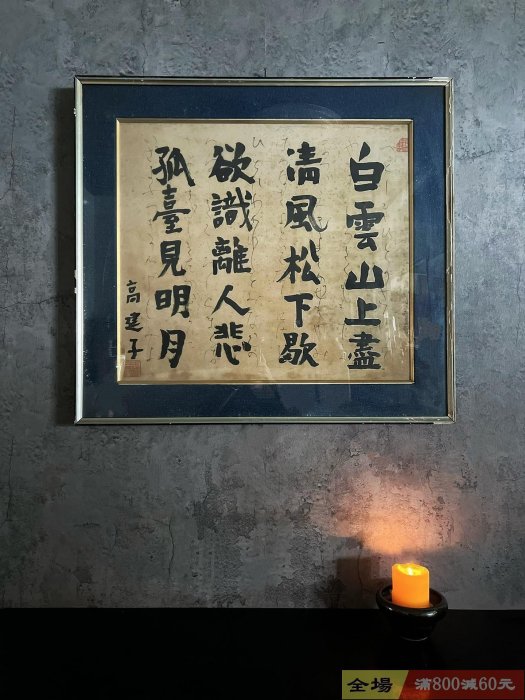 白雲山上盡
清風松下歇
欲識離人悲
孤臺見明月
高建子
全場
滿800減60元